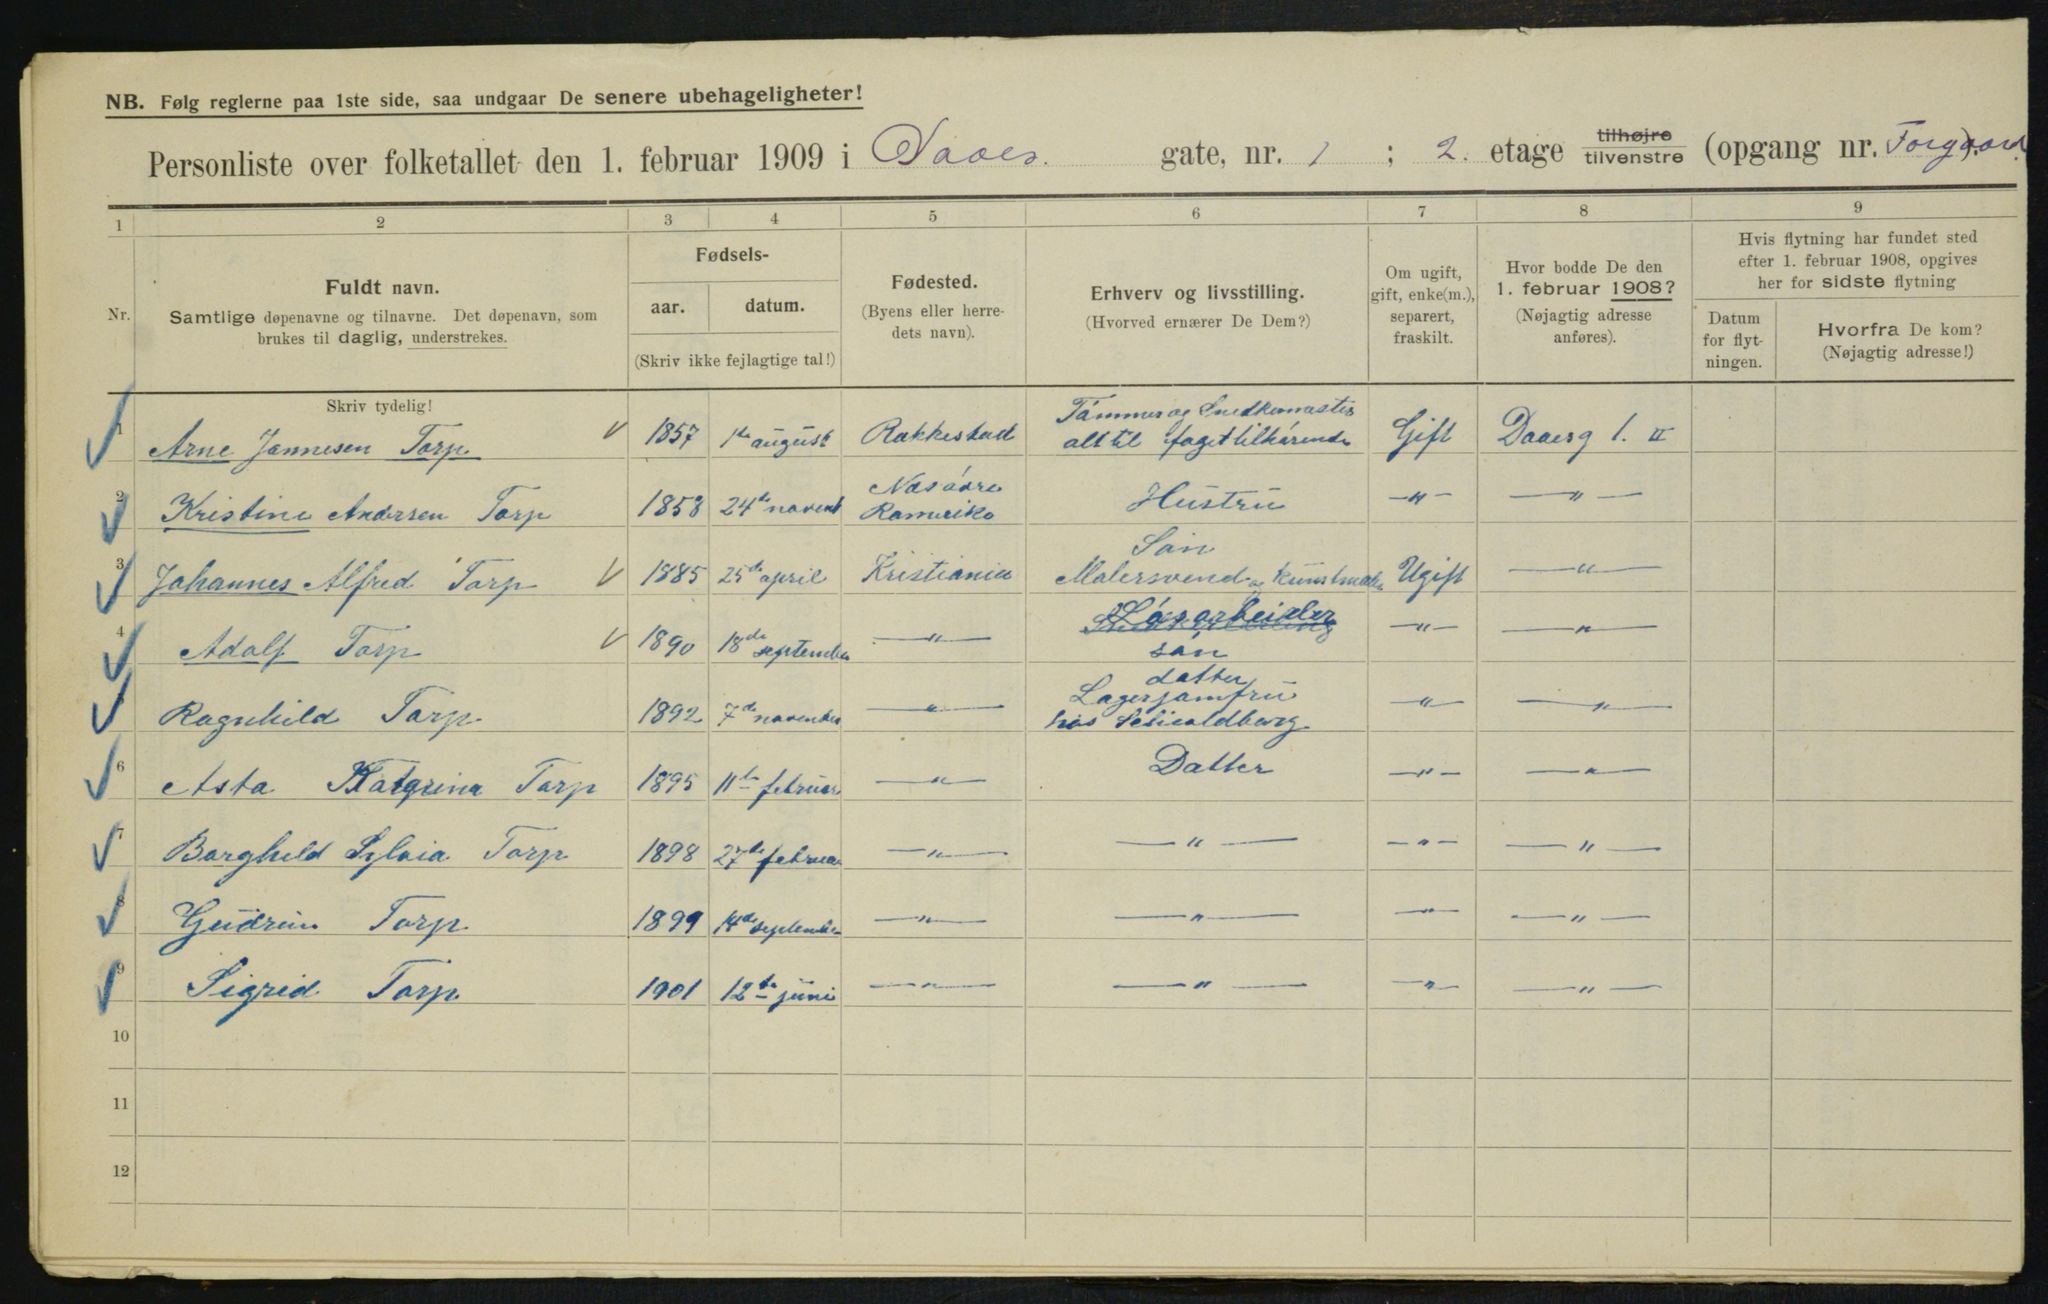 NB. Følg reglerne paa 1ste side, saa undgaar De senere ubehageligheter!
Personliste over folketallet den 1. februar 1909 i Daaes gate, nr. 1 ; 2. etage tilhøjre tilvenstre (opgang nr. Forgaard).
1 2 3 4 5 6 7 8 9
Nr.
Fuldt navn.
Samtlige døpenavne og tilnavne. Det døpenavn, som
brukes til daglig, understrekes.
Fødsels-
aar. datum.
(Skriv ikke fejlagtige tal!)
Fødested.
(Byens eller herre-
dets navn).
Erhverv og livsstilling.
(Hvorved ernærer De Dem?)
Om ugift,
gift, enke(m.),
separert,
fraskilt.
Hvor bodde De den
1. februar 1908?
(Nøjagtig adresse
anføres).
Hvis flytning har fundet sted
efter 1. februar 1908, opgives
her for sidste flytning
Datum
for flyt-
ningen.
Hvorfra De kom?
(Nøjagtig adresse!)
Skriv tydelig!
1 Arne Jannesen Torp 1857 1ste august Rakkestad Tømmer og Snedkermester
alt til faget tilhørende Gift Daaesg 1. II
2 Kristine Andersen Torp 1858 24de novemb Næs øvre
Romerike Hustru —"— —"—
3 Johannes Alfred Torp 1885 25de april Kristiania Søn
Malersvend og Kunstmaler Ugift —"—
4 Adolf Torp 1890 18de september —"— Løsarbeider
søn —"— —"—
5 Ragnhild Torp 1892 7de november —"— datter
Lagerjomfru
hos —"— —"—
6 Asta Katrina Torp 1895 11te februar —"— Datter —"— —"—
7 Borghild Sylvia Torp 1898 27de februar —"— —"— —"— —"—
8 Gudrun Torp 1899 14de september —"— —"— —"— —"—
9 Sigrid Torp 1901 12te juni —"— —"— —"— —"—
10
11
12